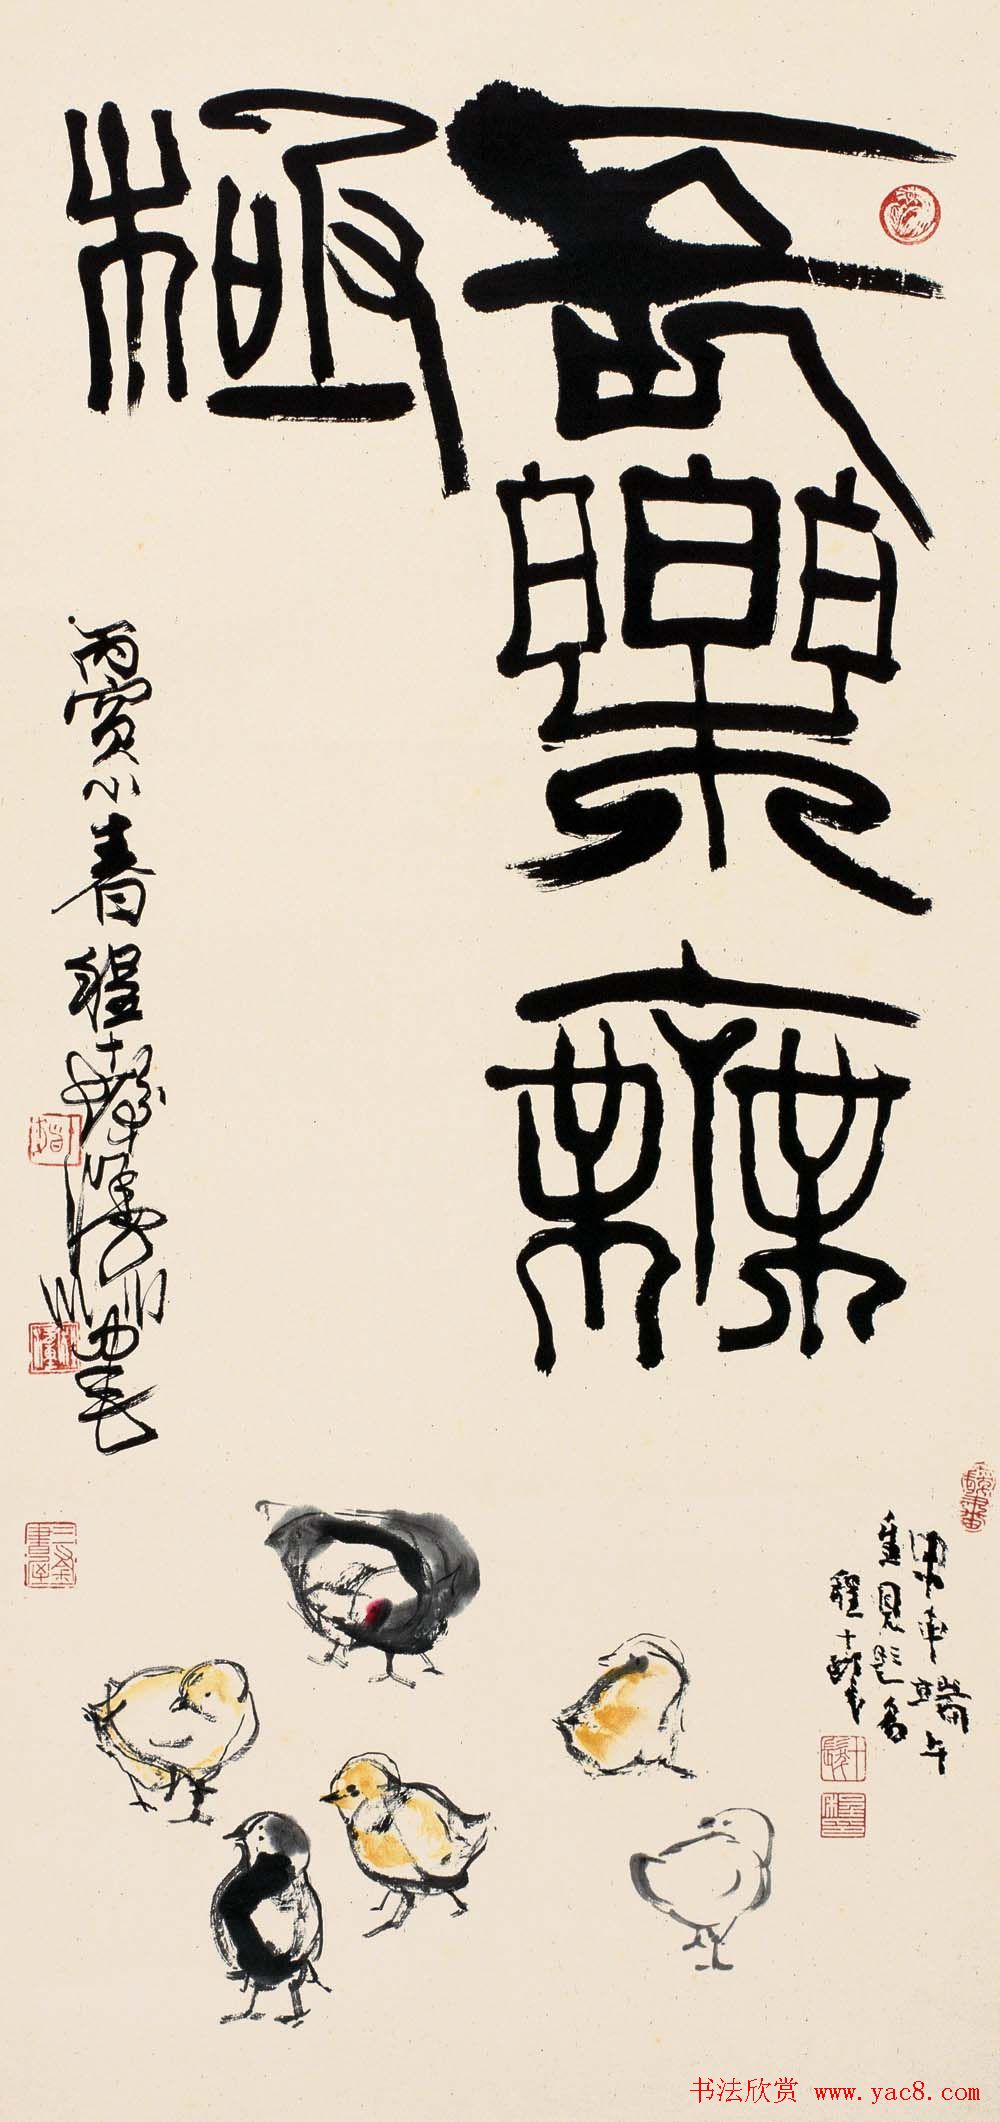 長樂無
極
丙寅小春程十髮
甲申端午
重見題名
程十髮
三釜書屋
书法欣赏 www.yac8.com